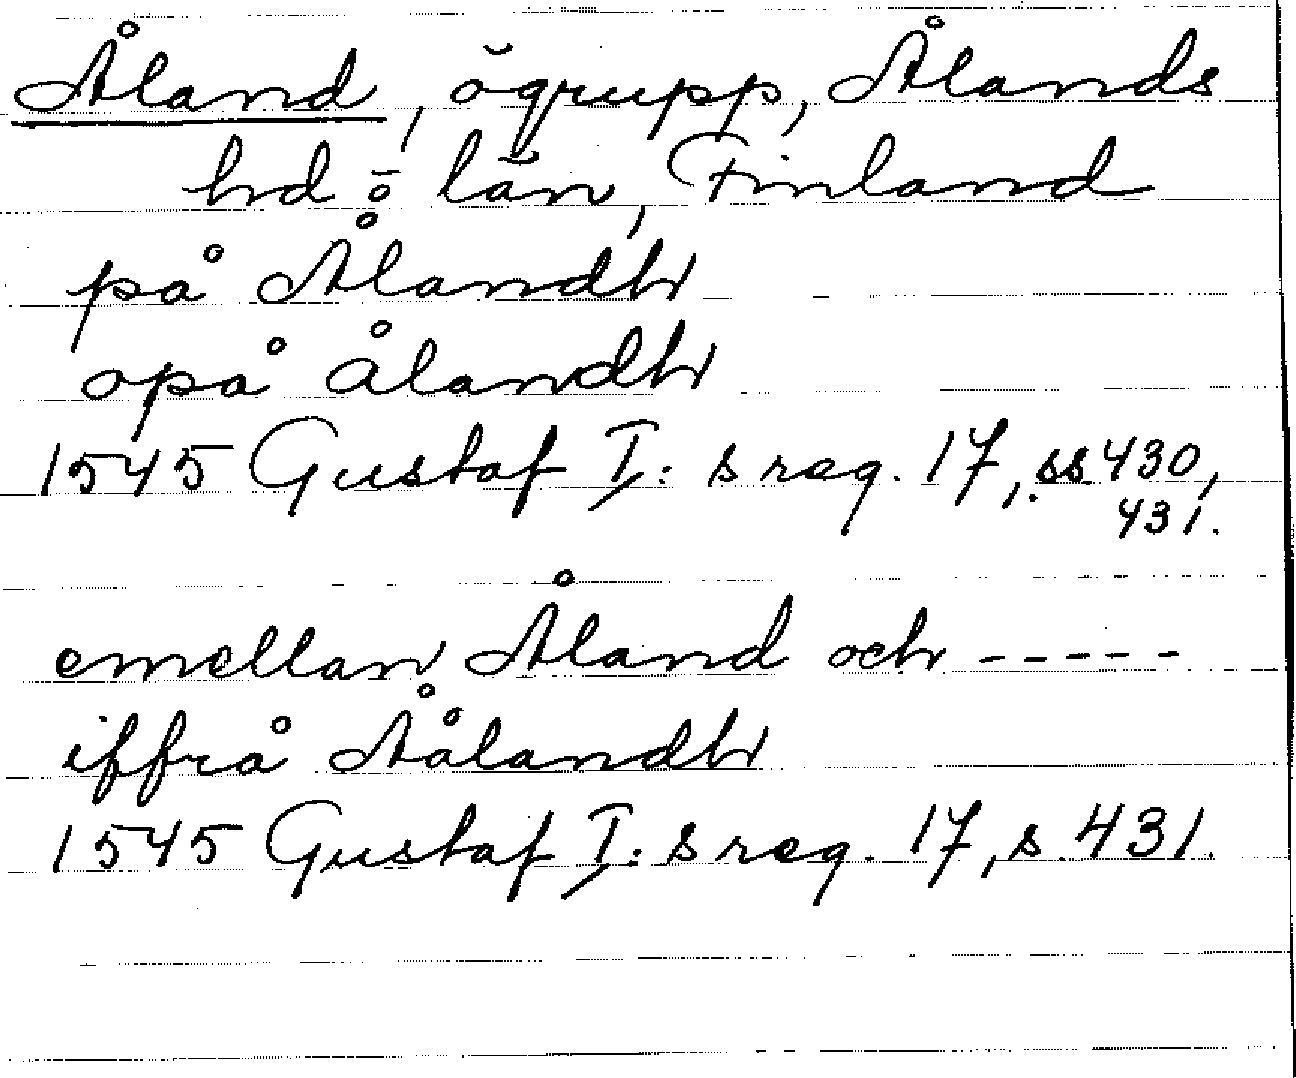 Åland, ögrupp, Ålands
hd o län, Finland
på Ålandh
opå ålandh
1545 Gustaf I: s reg. 17, ss 430,
431.
emellan Åland och -----
iffrå Åålandh
1545 Gustaf I: s reg. 17, s. 431.